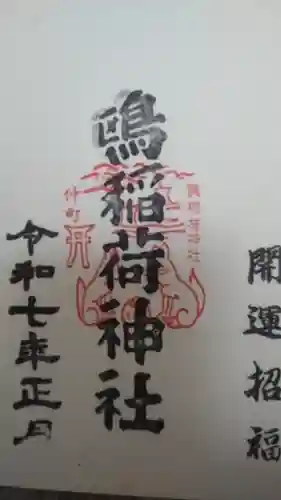 開運招福
鴎稲荷神社
仲町
令和七年正月